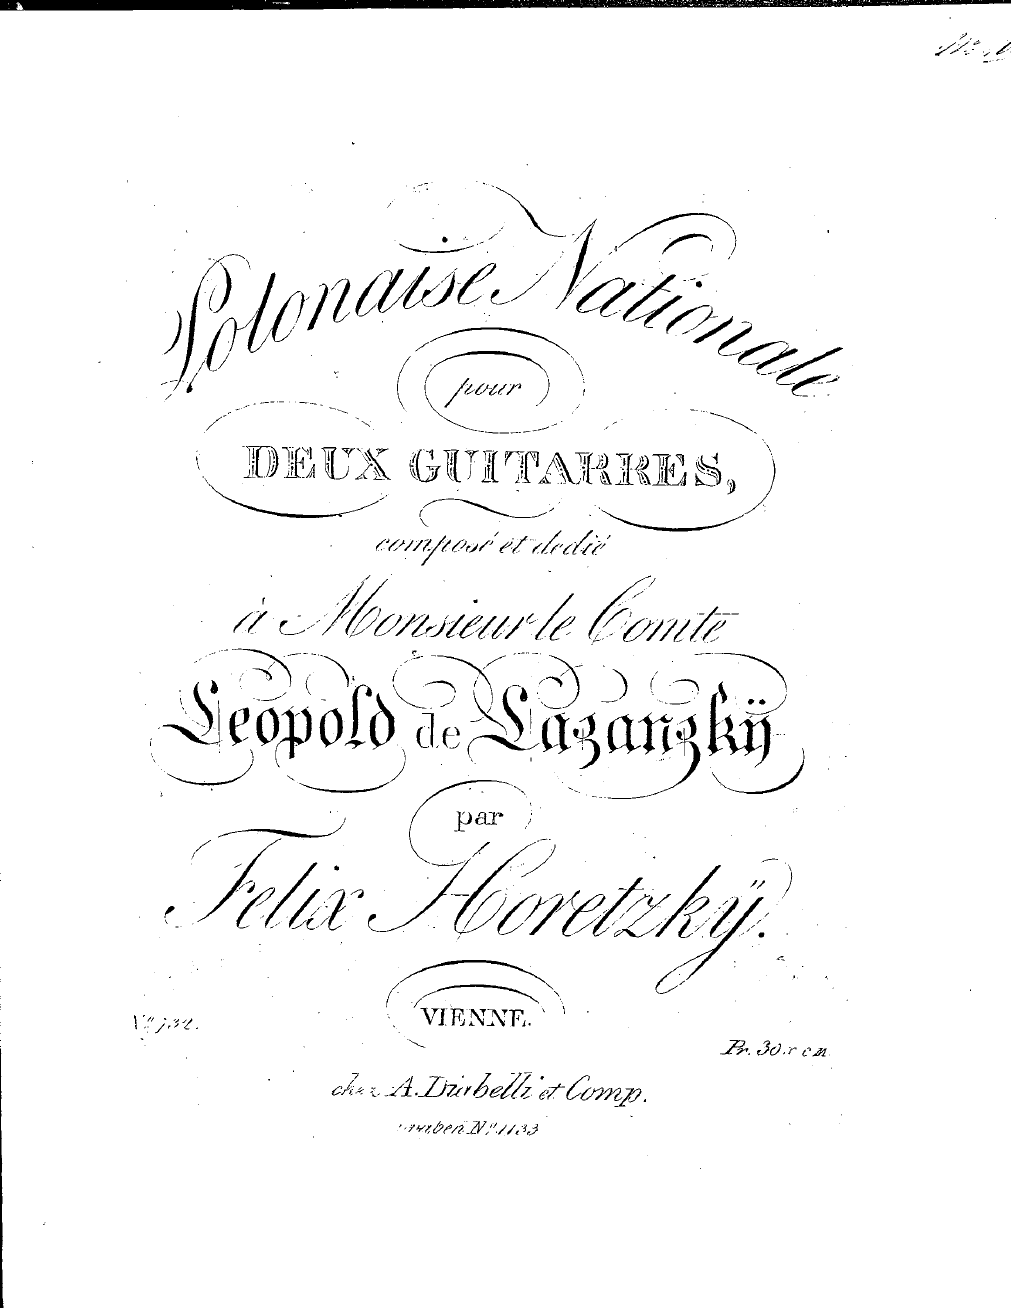 Polonaise Nationale
pour
DEUX GUITARRES,
composé et dedié
à Monsieur le Comte
Leopold de Lazanzkÿ
par
Felix Horetzkÿ.
VIENNE.
Nº 732.
Pr. 30.x C M
chez A. Diabelli et Comp.
Graben Nº 1133